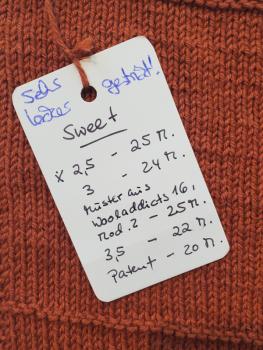 Sehr
locker gestrickt!
Sweet
x 2,5 - 25 M.
3 - 24 M.
Muster aus
Wooladdicts 16,
Mod. 2 - 25 M.
3,5 - 22 M.
Patent - 20 M.